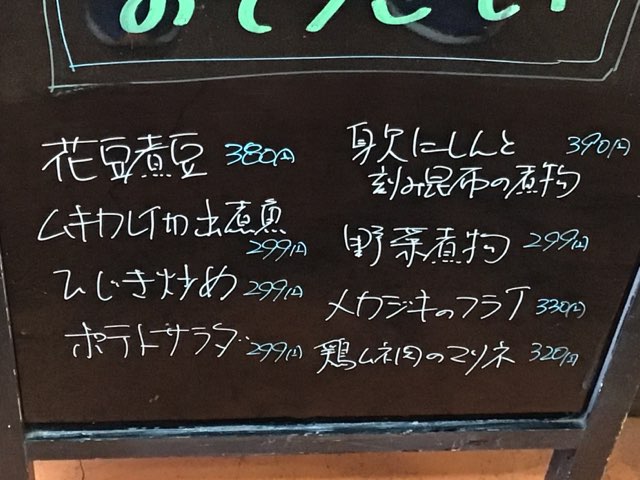 花豆煮豆 380円
ムキカレイの煮魚
299円
ひじき炒め 299円
ポテトサラダ 299円
身欠にしんと 390円
刻み昆布の煮物
野菜煮物 299円
メカジキのフライ 330円
鶏ムネ肉のマリネ 320円